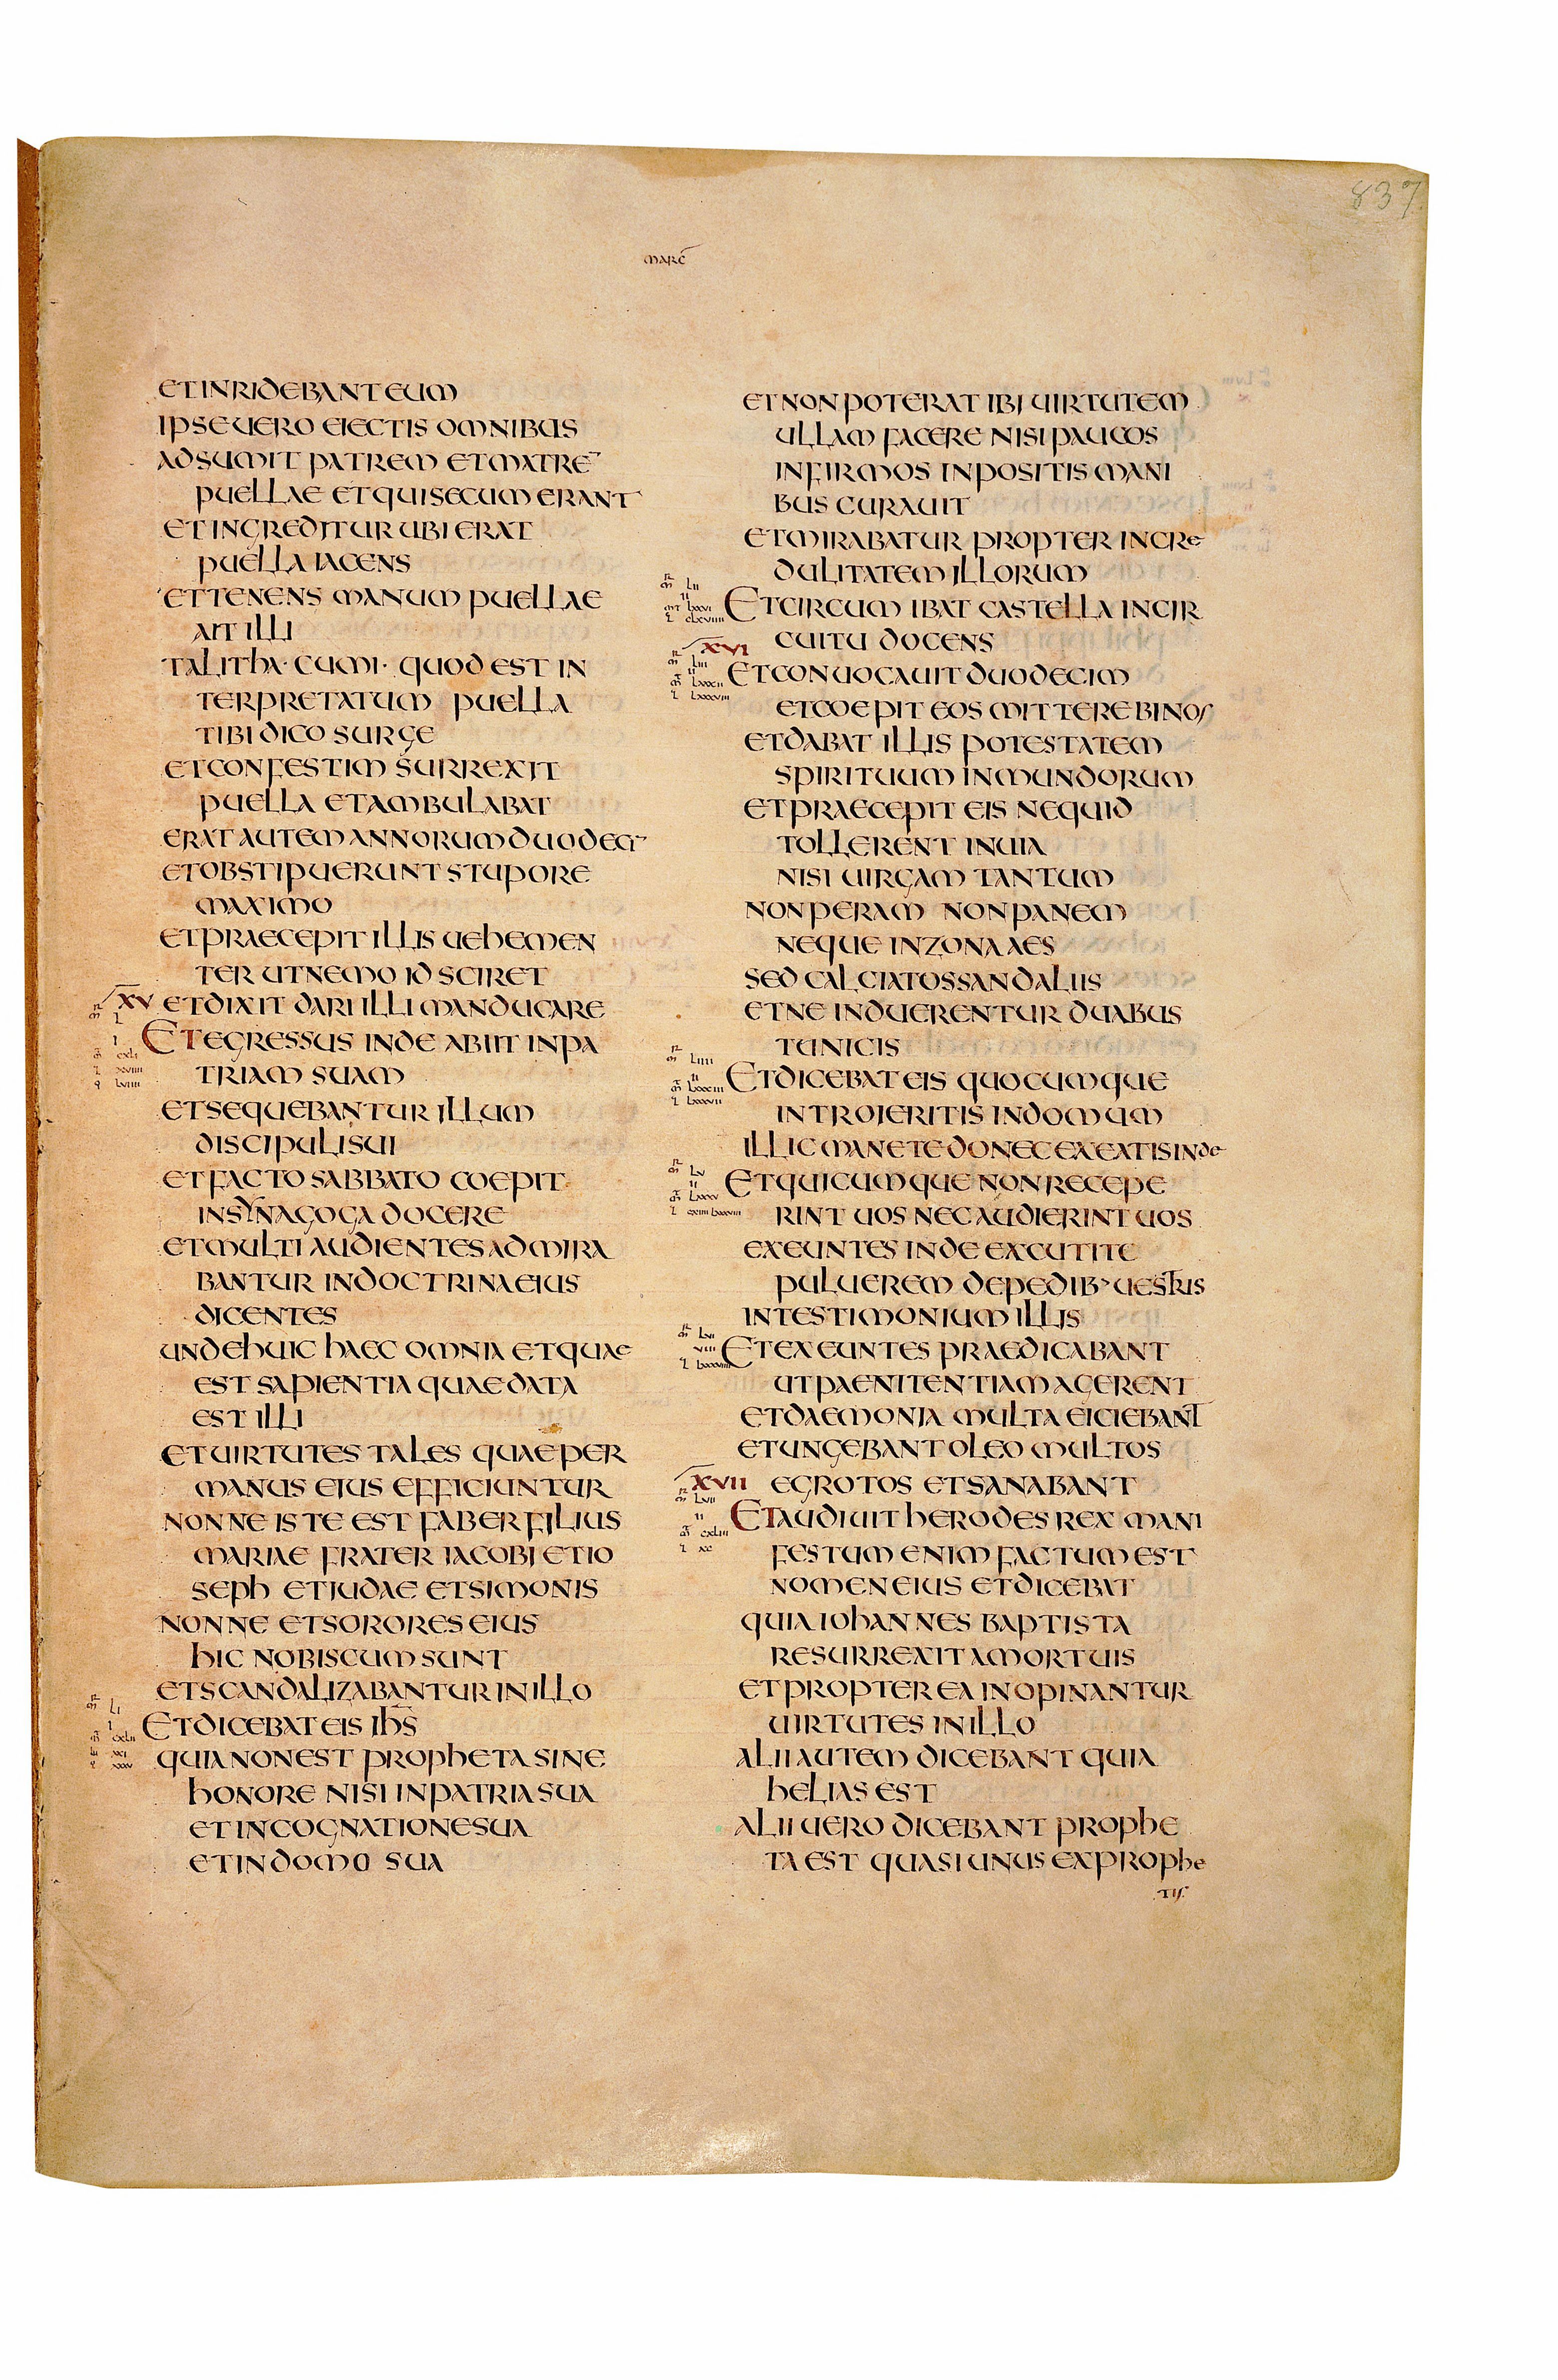 837
MARC̄
ET INRIDEBANT EUM
IPSE UERO EIECTIS OMNIBUS
ADSUMIT PATREM ET MATRE‾
PUELLAE ET QUI SECUM ERANT
ET INGREDITUR UBI ERAT
PUELLA IACENS
ET TENENS MANUM PUELLAE
AIT ILLI
TALITHA · CUMI · QUOD EST IN
TERPRETATUM PUELLA
TIBI DICO SURGE
ET CONFESTIM SURREXIT
PUELLA ET AMBULABAT
ERAT AUTEM ANNORUM DUODECI‾
ET OBSTIPUERUNT STUPORE
MAXIMO
ET PRAECEPIT ILLIS UEHEMEN
TER UT NEMO ID SCIRET
XV ET DIXIT DARI ILLI MANDUCARE
ET EGRESSUS INDE ABIIT IN PA
TRIAM SUAM
ET SEQUEBANTUR ILLUM
DISCIPULI SUI
ET FACTO SABBATO COEPIT
IN SYNAGOGA DOCERE
ET MULTI AUDIENTES ADMIRA
BANTUR IN DOCTRINA EIUS
DICENTES
UNDE HUIC HAEC OMNIA ET QUAE
EST SAPIENTIA QUAE DATA
EST ILLI
ET UIRTUTES TALES QUAE PER
MANUS EIUS EFFICIUNTUR
NONNE ISTE EST FABER FILIUS
MARIAE FRATER IACOBI ET IO
SEPH ET IUDAE ET SIMONIS
NONNE ET SORORES EIUS
HIC NOBISCUM SUNT
ET SCANDALIZABANTUR IN ILLO
ET DICEBAT EIS IH̄S
QUIA NON EST PROPHETA SINE
HONORE NISI IN PATRIA SUA
ET IN COGNATIONE SUA
ET IN DOMO SUA
ET NON POTERAT IBI UIRTUTEM
ULLAM FACERE NISI PAUCOS
INFIRMOS INPOSITIS MANI
BUS CURAUIT
ET MIRABATUR PROPTER INCRE
DULITATEM ILLORUM
ET CIRCUMIBAT CASTELLA IN CIR
CUITU DOCENS
XVI
ET CONUOCAUIT DUODECIM
ET COEPIT EOS MITTERE BINOS
ET DABAT ILLIS POTESTATEM
SPIRITUUM INMUNDORUM
ET PRAECEPIT EIS NE QUID
TOLLERENT IN UIA
NISI UIRGAM TANTUM
NON PERAM NON PANEM
NEQUE IN ZONA AES
SED CALCIATOS SANDALIIS
ET NE INDUERENTUR DUABUS
TUNICIS
ET DICEBAT EIS QUOCUMQUE
INTROIERITIS IN DOMUM
ILLIC MANETE DONEC EXEATIS INDE
ET QUICUMQUE NON RECEPE
RINT UOS NEC AUDIERINT UOS
EXEUNTES INDE EXCUTITE
PULUEREM DE PEDIB· UESTRIS
IN TESTIMONIUM ILLIS
ET EXEUNTES PRAEDICABANT
UT PAENITENTIAM AGERENT
ET DAEMONIA MULTA EICIEBANT
ET UNGEBANT OLEO MULTOS
XVII EGROTOS ET SANABANT
ET AUDIUIT HERODES REX MANI
FESTUM ENIM FACTUM EST
NOMEN EIUS ET DICEBAT
QUIA IOHANNES BAPTISTA
RESURREXIT A MORTUIS
ET PROPTEREA INOPINANTUR
UIRTUTES IN ILLO
ALII AUTEM DICEBANT QUIA
HELIAS EST
ALII UERO DICEBANT PROPHE
TA EST QUASI UNUS EX PROPHE
TIS